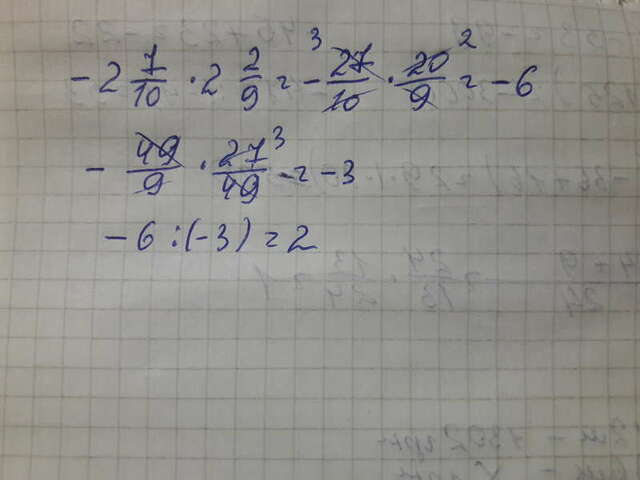 -2 7/10 · 2 2/9 = - 27³/10 · 20²/9 = -6
- 49/9 · 27³/49 = -3
-6:(-3)=2